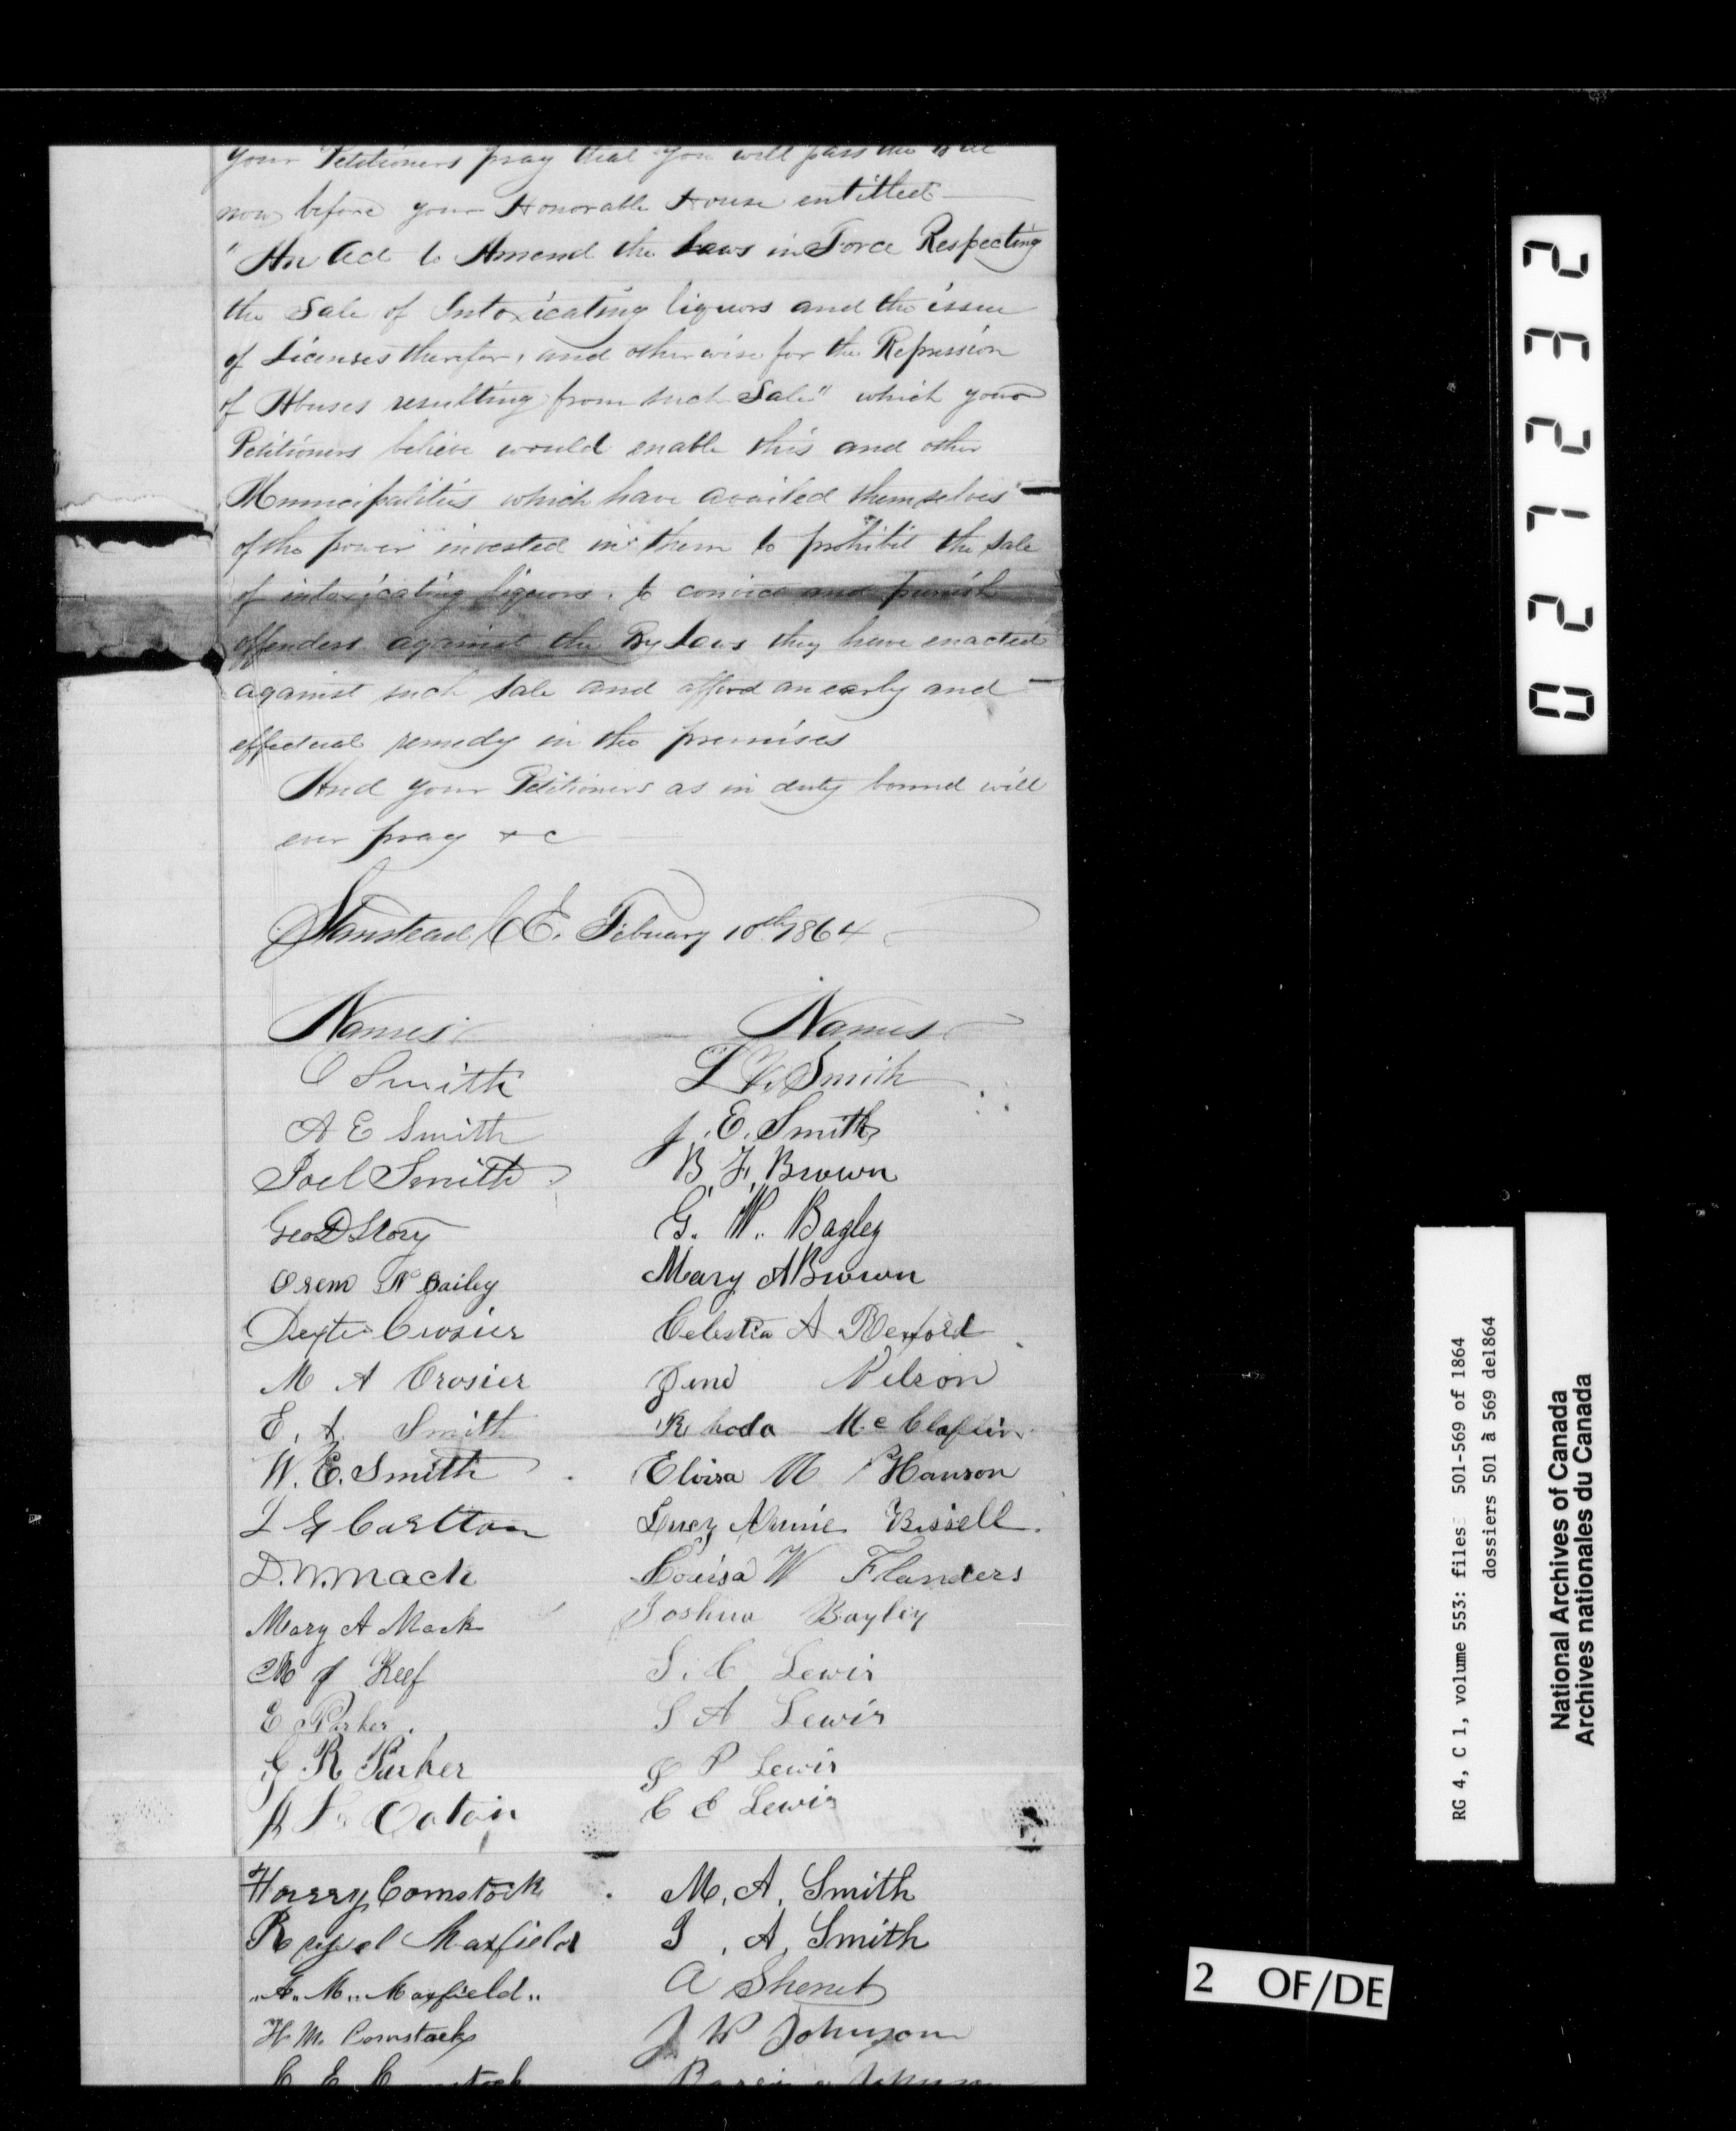 your Petitioners pray that you will pass the Bill
now before your Honorable House entitled
"An Act to Amend the Laws in Force Respecting
the Sale of Intoxicating liquors and the issue
of Licenses therefor, and otherwise for the Repression
of Abuses resulting from such Sale" which your
Petitioners believe would enable this and other
Municipalities which have availed themselves
of the power invested in them to prohibit the sale
of intoxicating liquors. to convict and punish
offenders against the By Laws they have enacted
against such sale and afford an early and
effectual remedy in the premises
And your Petitioners as in duty bound will
ever pray &c
Stanstead C.E. February 10th 1864
Names
O Smith
A E Smith
Joel Smith
Geo D Story
Orem W Bailey
Dexter Crosier
M A Crosier
E. A. Smith
W. E. Smith
L G Carlton
D. W. Mack
Mary A Mack
M J Keef
E Parker.
G R Parker
Harry Comstock
Maxfield
"A. M. Maxfield"
H M. Comstock
C E Comstock
Names
L V. Smith
J. E. Smith
B. F. Brown
G. W. Bagley
Mary A Brown
Celestia A Rexford
Jane Nelson
Rhoda Mc Claflin
Eloisa M Hanson
Lucy Annie Bissell.
Louisa W Flanders
Joshua Bayley
S. C Lewis
S A Lewis
J P Lewis
C C Lewis
M. A. Smith
S. A. Smith
A
J W Johnson
0271232
RG 4, C 1, volume 553: files 501-569 of 1864
dossiers 501 à 569 de1864
National Archives of Canada
Archives nationales du Canada
2 OF/DE